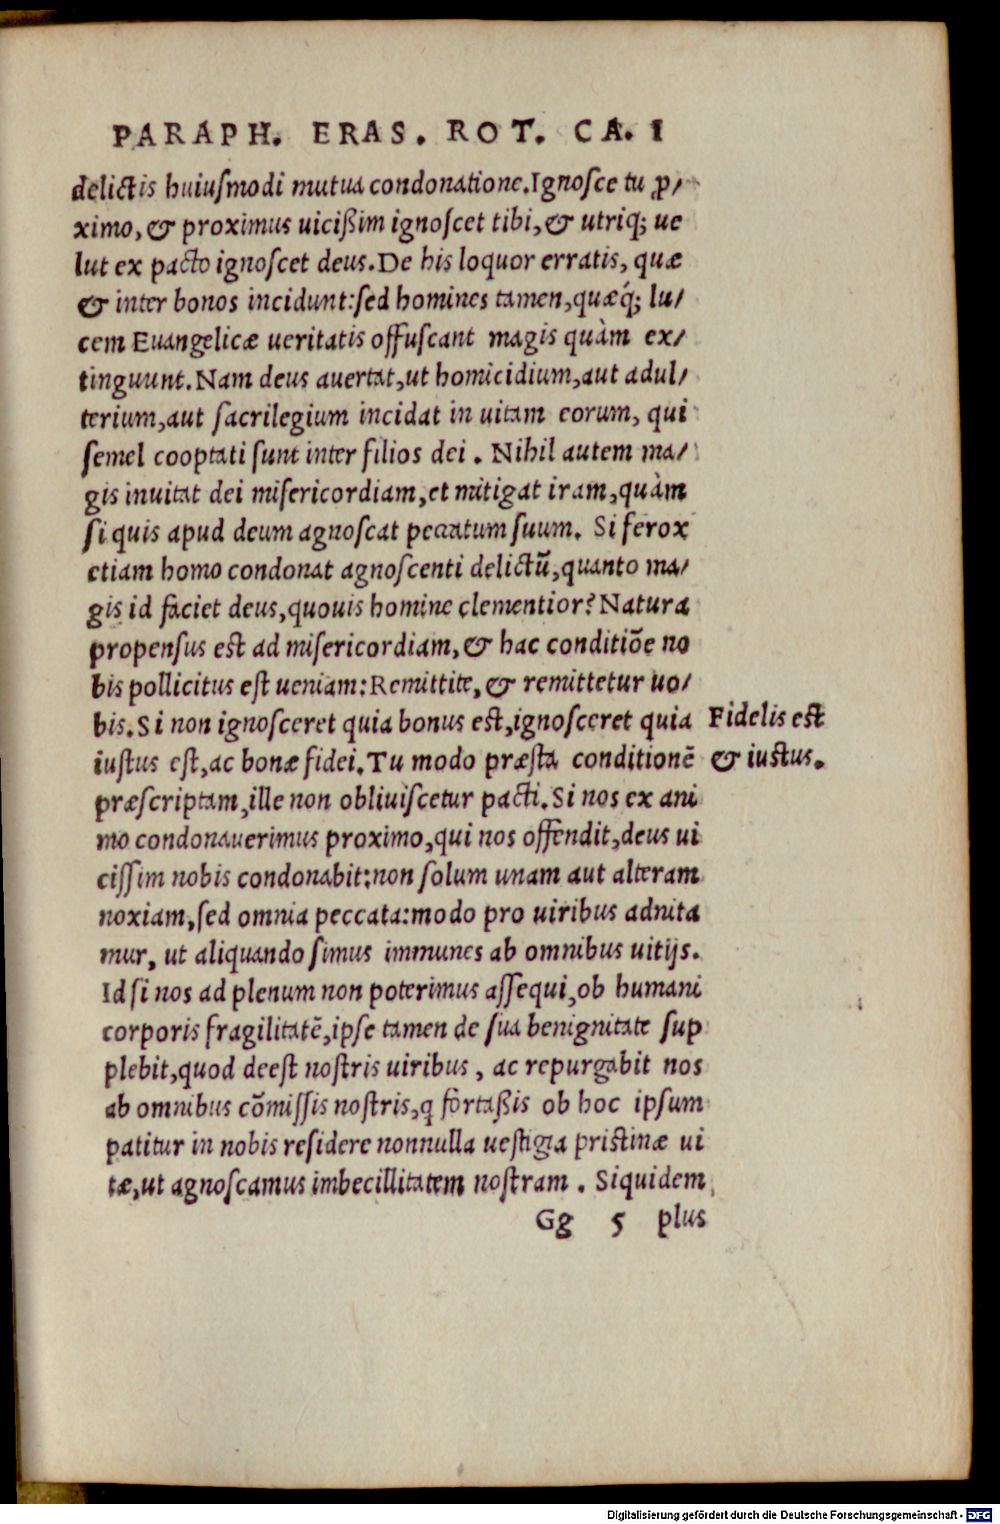 PARAPH. ERAS. ROT. CA. I
delictis huiusmodi mutua condonatione. Ignosce tu ꝓ/
ximo, & proximus uicißim ignoscet tibi, & utriq; ue
lut ex pacto ignoscet deus. De his loquor erratis, quæ
& inter bonos incidunt: sed homines tamen, quæq́; lu/
cem Euangelicæ ueritatis offuscant magis quàm ex/
tinguunt. Nam deus auertat, ut homicidium, aut adul/
terium, aut sacrilegium incidat in uitam eorum, qui
semel cooptati sunt inter filios dei. Nihil autem ma/
gis inuitat dei misericordiam, et mitigat iram, quàm
si quis apud deum agnoscat peccatum suum. Si ferox
etiam homo condonat agnoscenti delictū, quanto ma/
gis id faciet deus, quouis homine clementior? Natura
propensus est ad misericordiam, & hac conditiōe no
bis pollicitus est ueniam: Remittite, & remittetur uo/
bis. Si non ignosceret quia bonus est, ignosceret quia
iustus est, ac bonæ fidei. Tu modo præsta conditionē
Fidelis est
& iustus.
præscriptam, ille non obliuiscetur pacti. Si nos ex ani
mo condonauerimus proximo, qui nos offendit, deus ui
cissim nobis condonabit: non solum unam aut alteram
noxiam, sed omnia peccata: modo pro uiribus adnita
mur, ut aliquando simus immunes ab omnibus uitijs.
Id si nos ad plenum non poterimus assequi, ob humani
corporis fragilitatē, ipse tamen de sua benignitate sup
plebit, quod deest nostris uiribus, ac repurgabit nos
ab omnibus cōmissis nostris, q fortaßis ob hoc ipsum
patitur in nobis residere nonnulla uestigia pristinæ ui
tæ, ut agnoscamus imbecillitatem nostram. Siquidem
Gg 5 plus
Digitalisierung gefördert durch die Deutsche Forschungsgemeinschaft - DFG